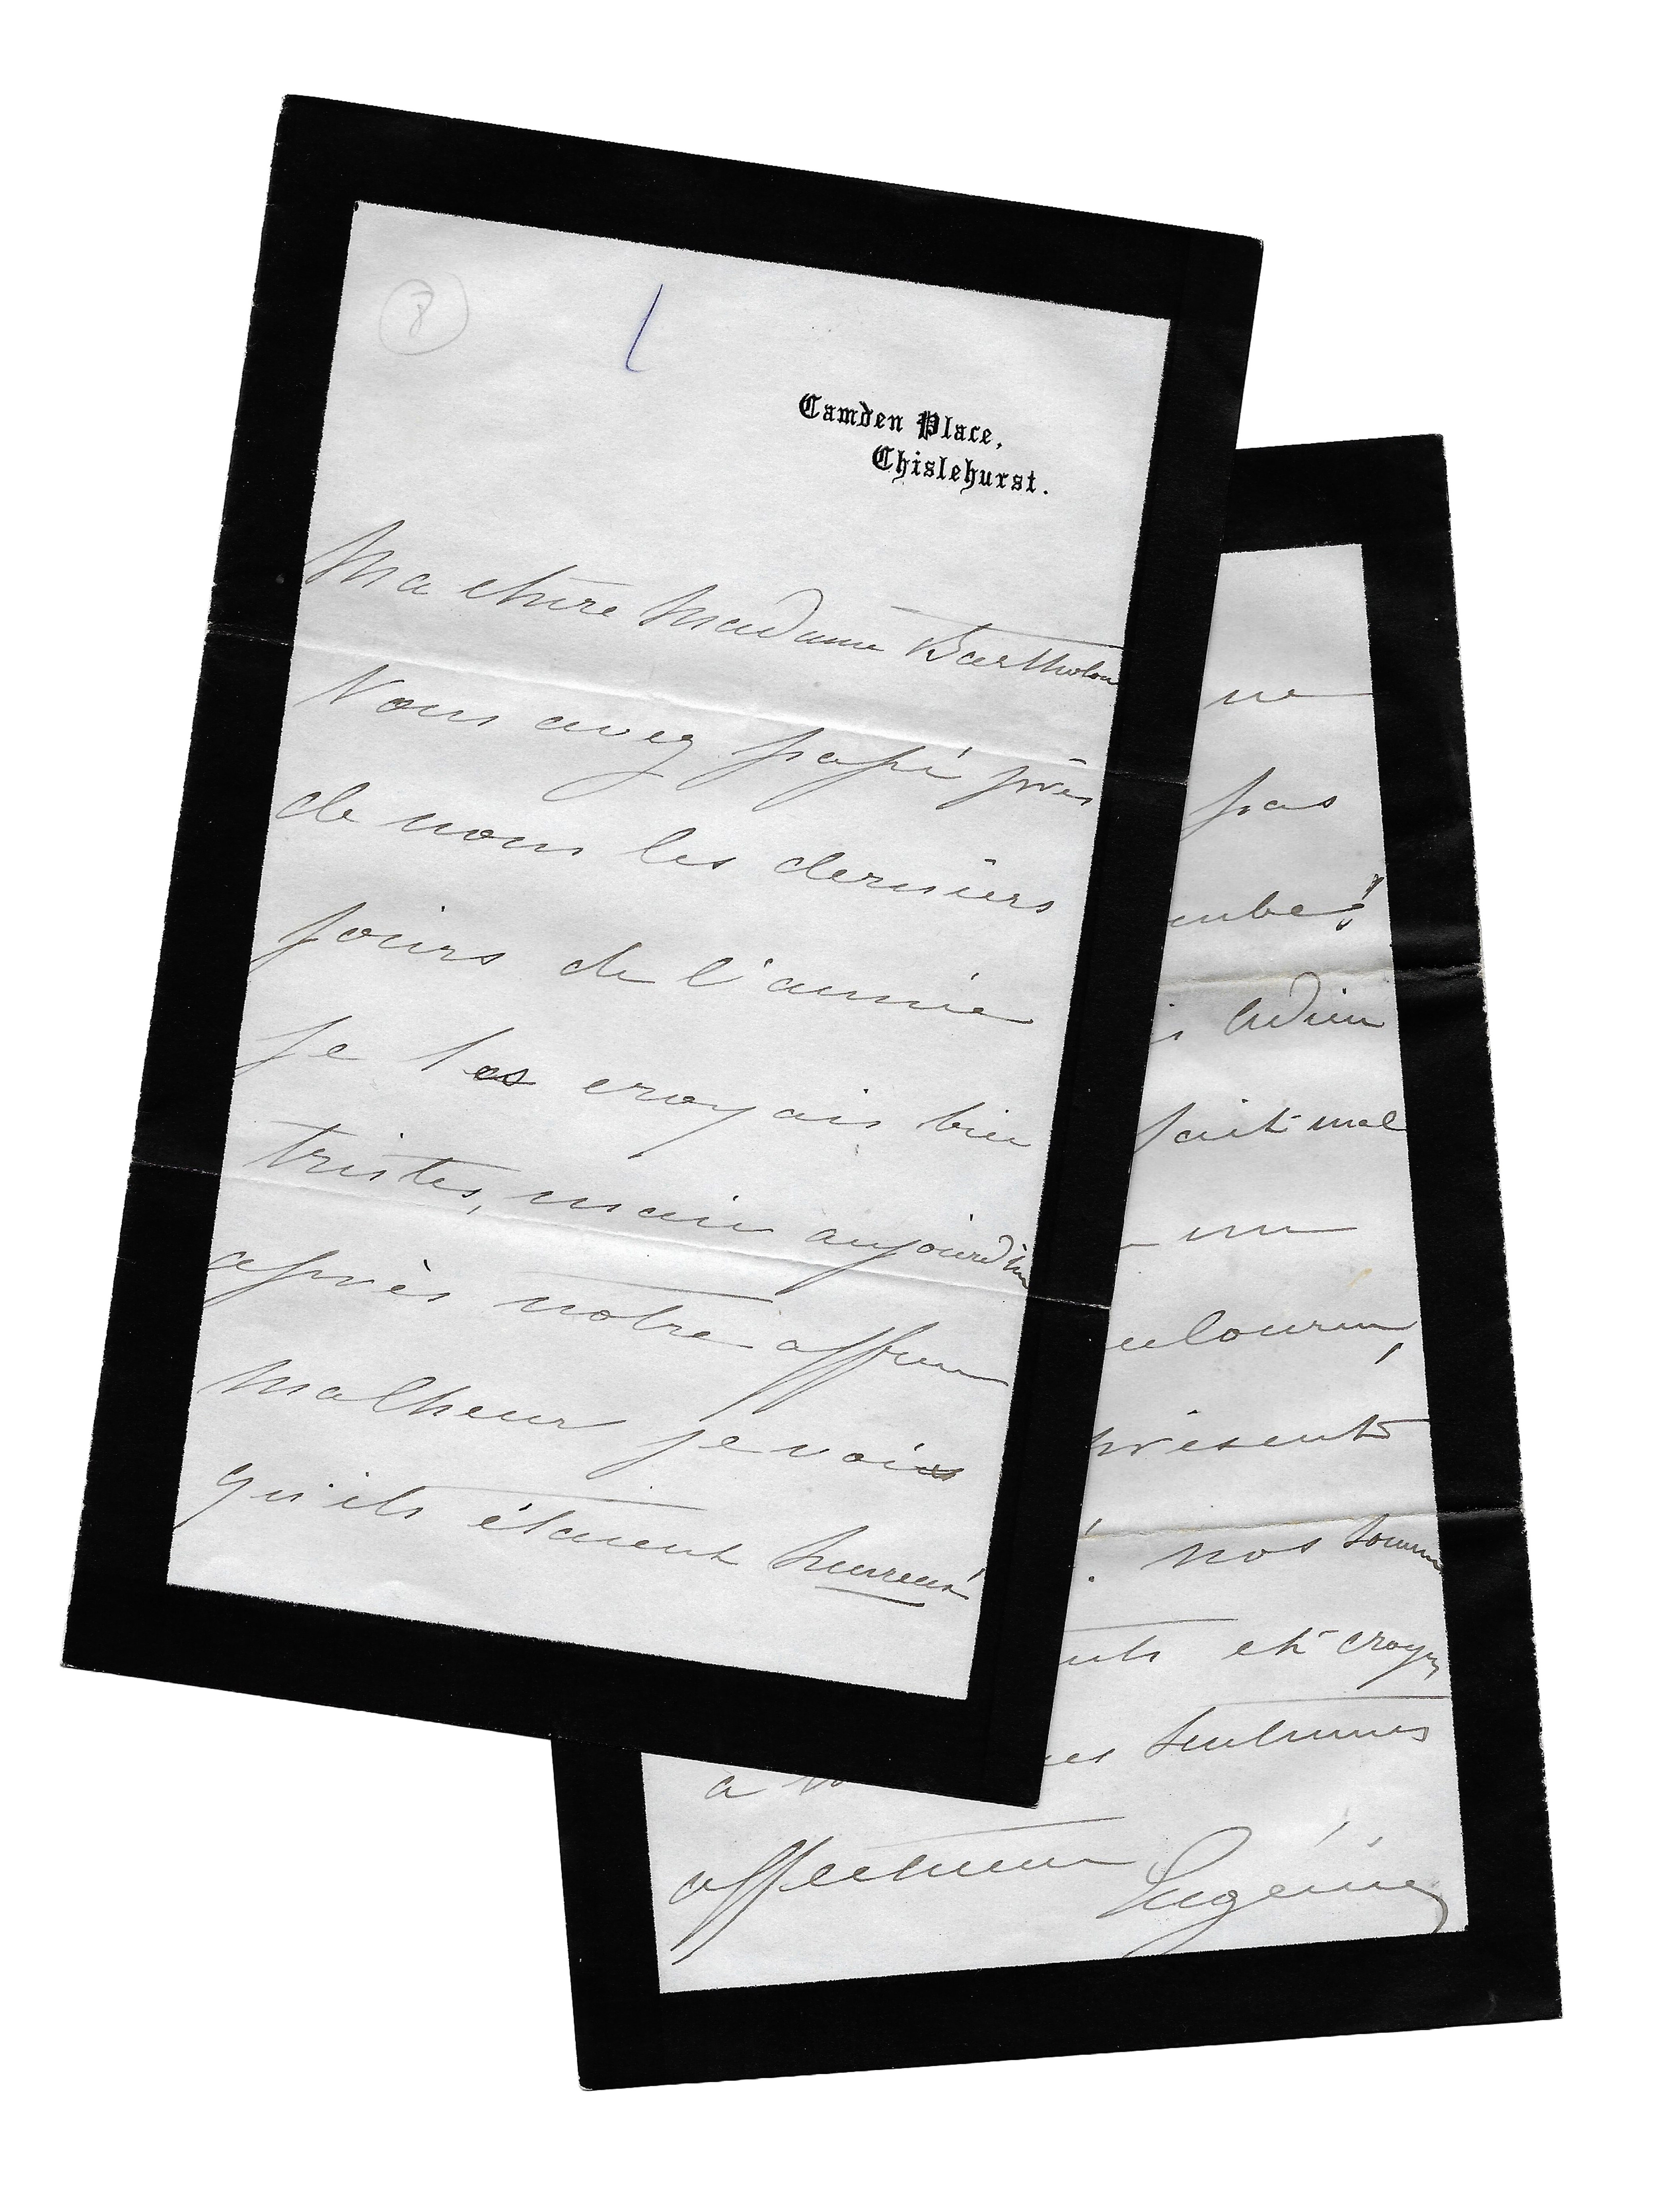 8
Camden Place,
Chislehurst.
Ma chère Madame Bartholon
Vous avez passé près
de nous les derniers
jours de l'année
je les croyais bien
tristes, mais aujourd'hui
après notre affreux
malheur je vois
qu'ils étaient heureux
ne
pas
adieu
fait mal
un
présent
nos
et croyez
a
sentiments
affectueux Eugénie